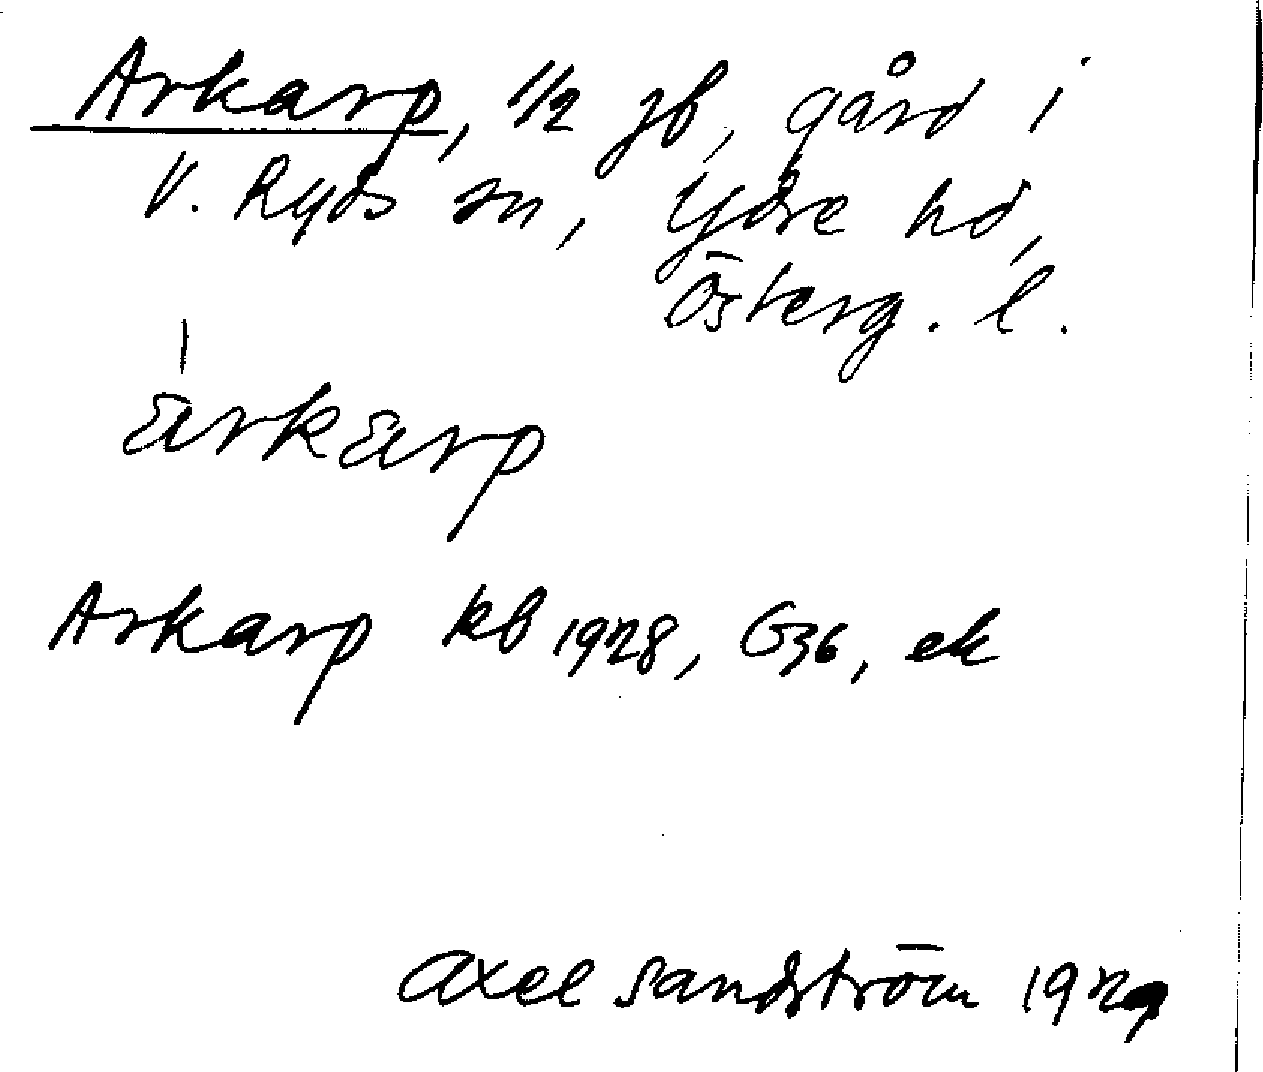 Arkarp, 1/2 jb, gård i
V. Ryds sn, Ydre hd,
Österg. l.
arkarp
Arkarp kb 1928, G36, ek
Axel Sandström 1929